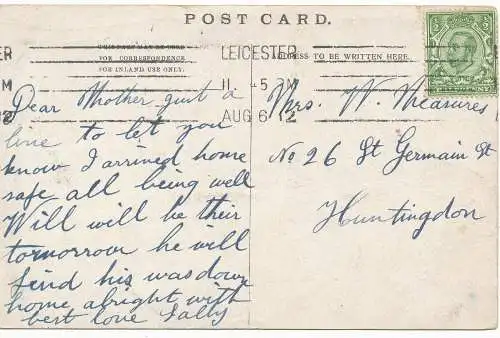 POST CARD.
THIS PART MAY BE USED
FOR CORRESPONDENCE
FOR INLAND USE ONLY.
ADDRESS TO BE WRITTEN HERE.
LEICESTER
11 45 PM
AUG 6 12
Dear Mother just a
line to let you
know I arrived home
safe all being well
Will will be their
tomorrow he will
find his was down
home alright with
best love Sally
Mrs. W. Measures
No 26 St Germain St
Huntingdon